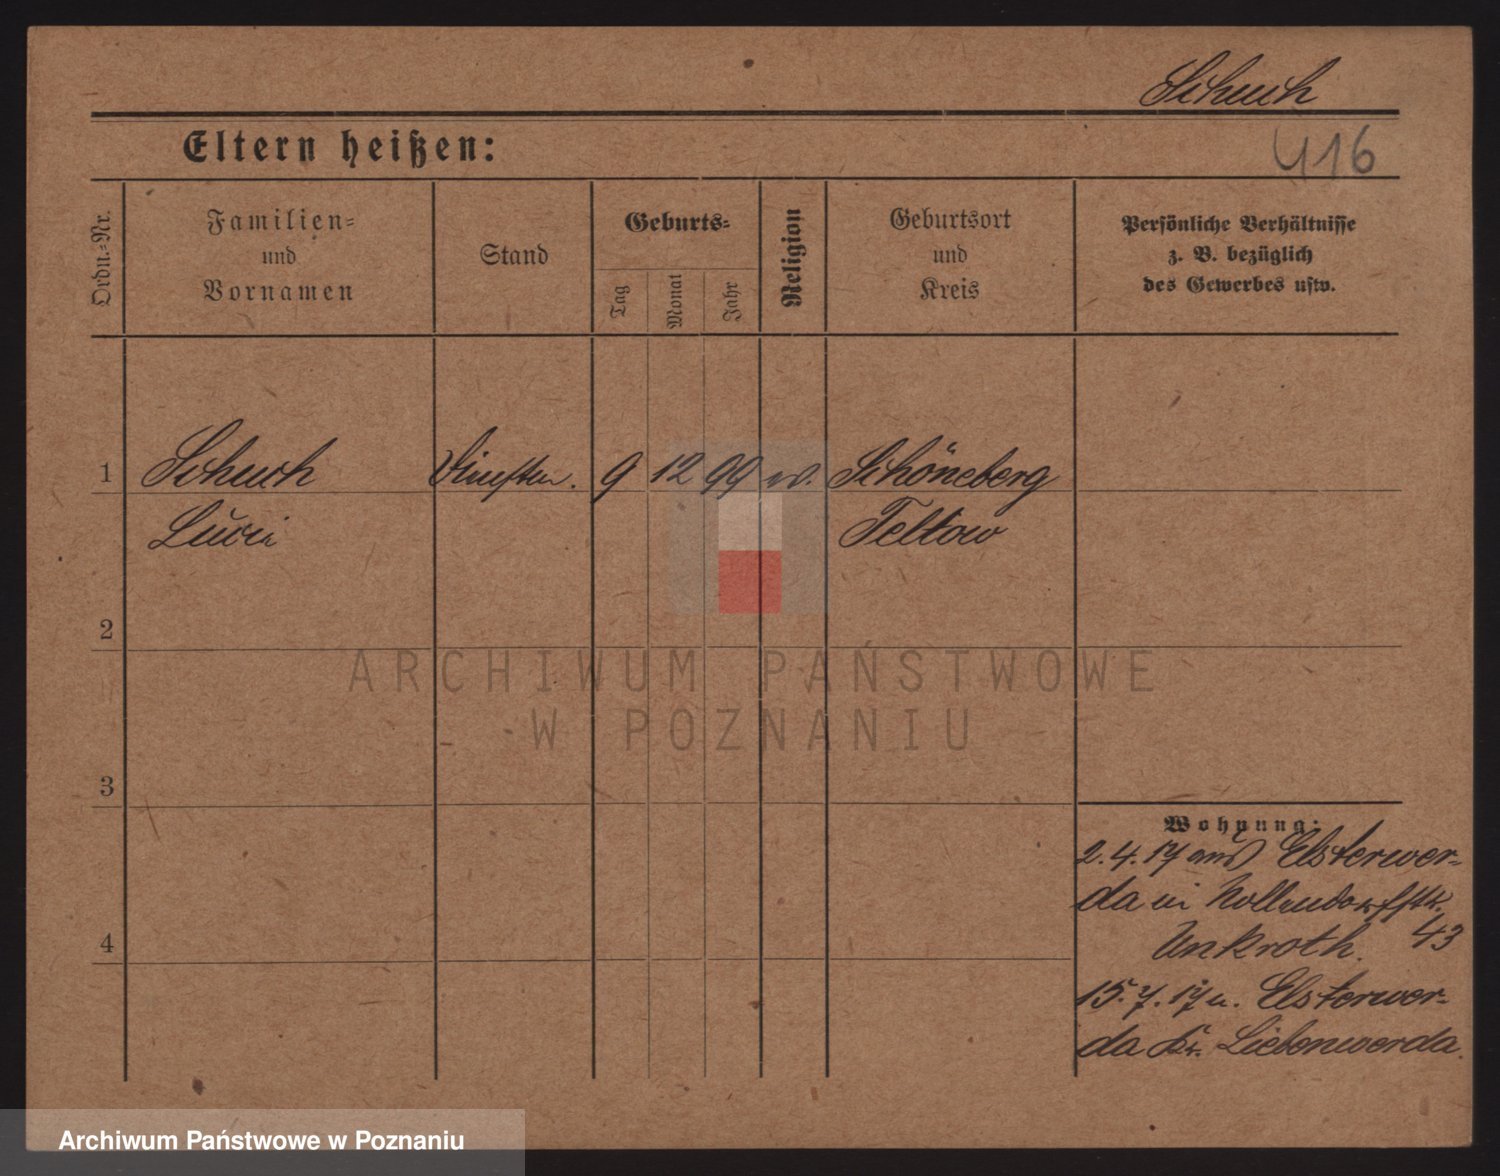 Schuch
Eltern heißen:
416
Ordn.=Nr.
Familien=
und
Vornamen
Stand
Geburts=
Tag
Monat
Jahr
Religion
Geburtsort
und
Kreis
Persönliche Verhältnisse
z. B. bezüglich
des Gewerbes usw.
1
Schuch
9
12
99
Schöneberg
Luci
Teltow
2
3
4
Wohnung:
2.4.17 aus Elsterwer-
da in Nollendorfstr.
43
Unkroth.
15.7.17 n. Elsterwer-
da Kr. Liebenwerda.
ARCHIWUM PAŃSTWOWE
W POZNANIU
Archiwum Państwowe w Poznaniu